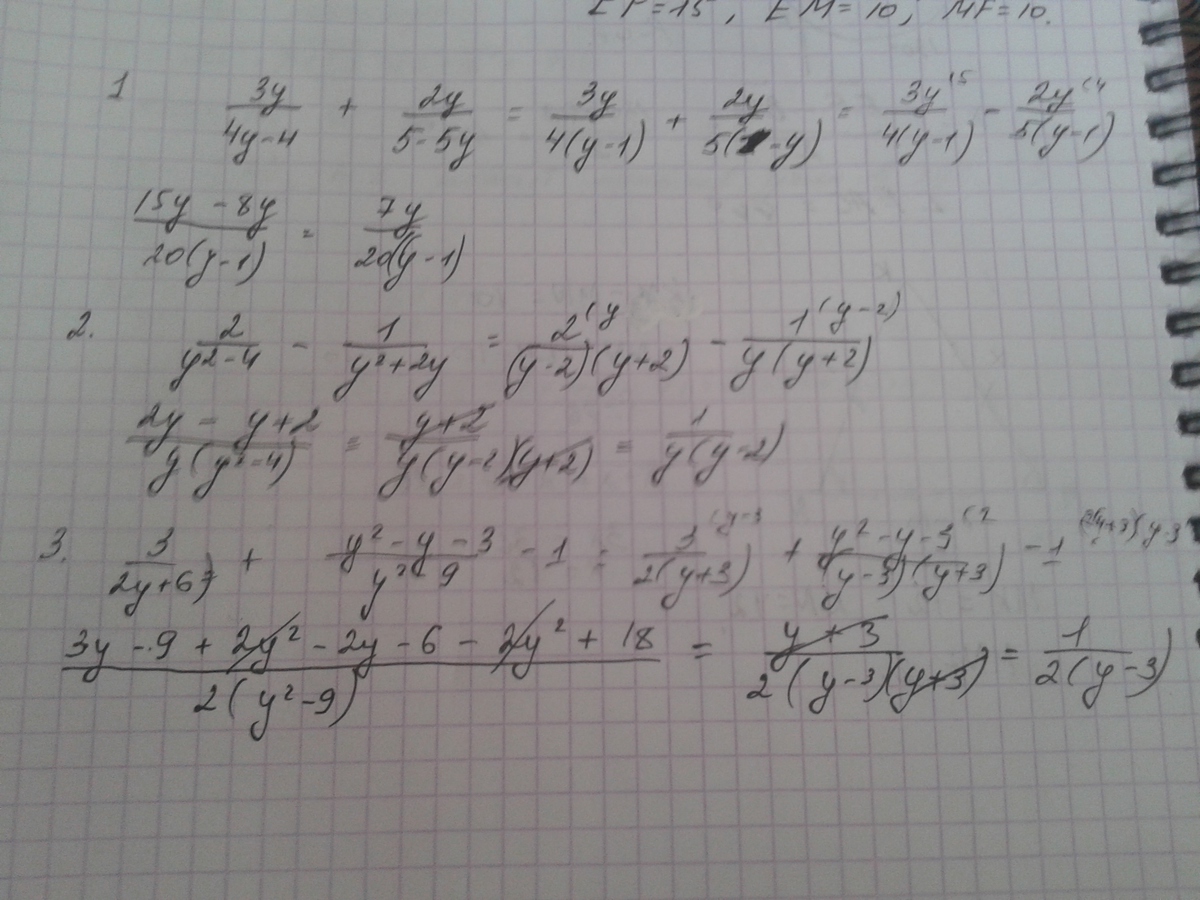 EF=15, EM=10, MF=10.
1 3y/(4y-4) + 2y/(5-5y) = 3y/(4(y-1)) + 2y/(5( -y)) = 3y⁽⁵/(4(y-1)) - 2y⁽⁴/(5(y-1))
(15y-8y)/(20(y-1)) = 7y/(20(y-1))
2. 2/(y²-4) - 1/(y²+2y) = 2⁽ʸ/((y-2)(y+2)) - 1^((y-2))/(y(y+2))
(2y - y+2)/(y(y²-4)) = (y+2)/(y(y-2)(y+2)) = 1/(y(y-2))
3. 3/(2y+6) + (y²-y-3)/(y²-9) - 1 = 3^((y-3)/(2(y+3)) + (y²-y-3)⁽²/((y-3)(y+3)) - 1^((2(y+3)(y-3)
(3y-9+2y²-2y-6-2y²+18)/(2(y²-9)) = (y+3)/(2(y-3)(y+3)) = 1/(2(y-3))